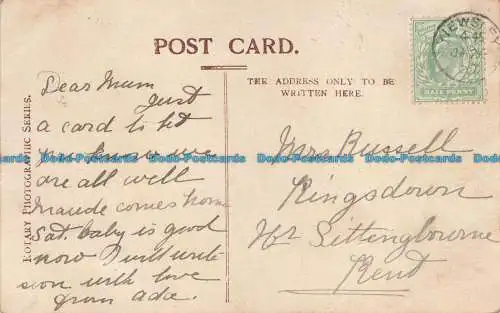 POST CARD.
THE ADDRESS ONLY TO BE
WRITTEN HERE.
HALF PENNY
ROTARY PHOTOGRAPHIC SERIES.
Dear Mum
Just
a card to let
you know we
are all well
Maude comes home
Sat. baby is good
now I will write
soon with love
from Ada.
Mrs Russell
Kingsdown
Nr Sittingbourne
Kent
Dodo-Postcards Dodo-Postcards Dodo-Postcards Dodo-Postcards Dodo-Postcards